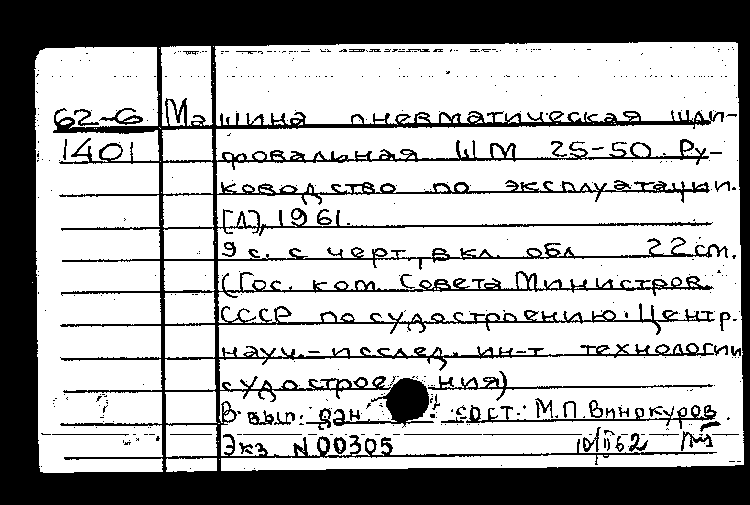 62-6 Машина пневматическая шли-
1401 фовальная ШМ 25-50. Ру-
ководство по эксплуатации.
[Л], 1961.
9 с. с черт., вкл. обл 22 см.
(Гос. ком. Совета Министров
СССР по судостроению. Центр.
науч.-исслед. ин-т технологии
судостроения)
В вып. дан. сост.: М.П. Винокуров.
Экз. N00305 10/II 62